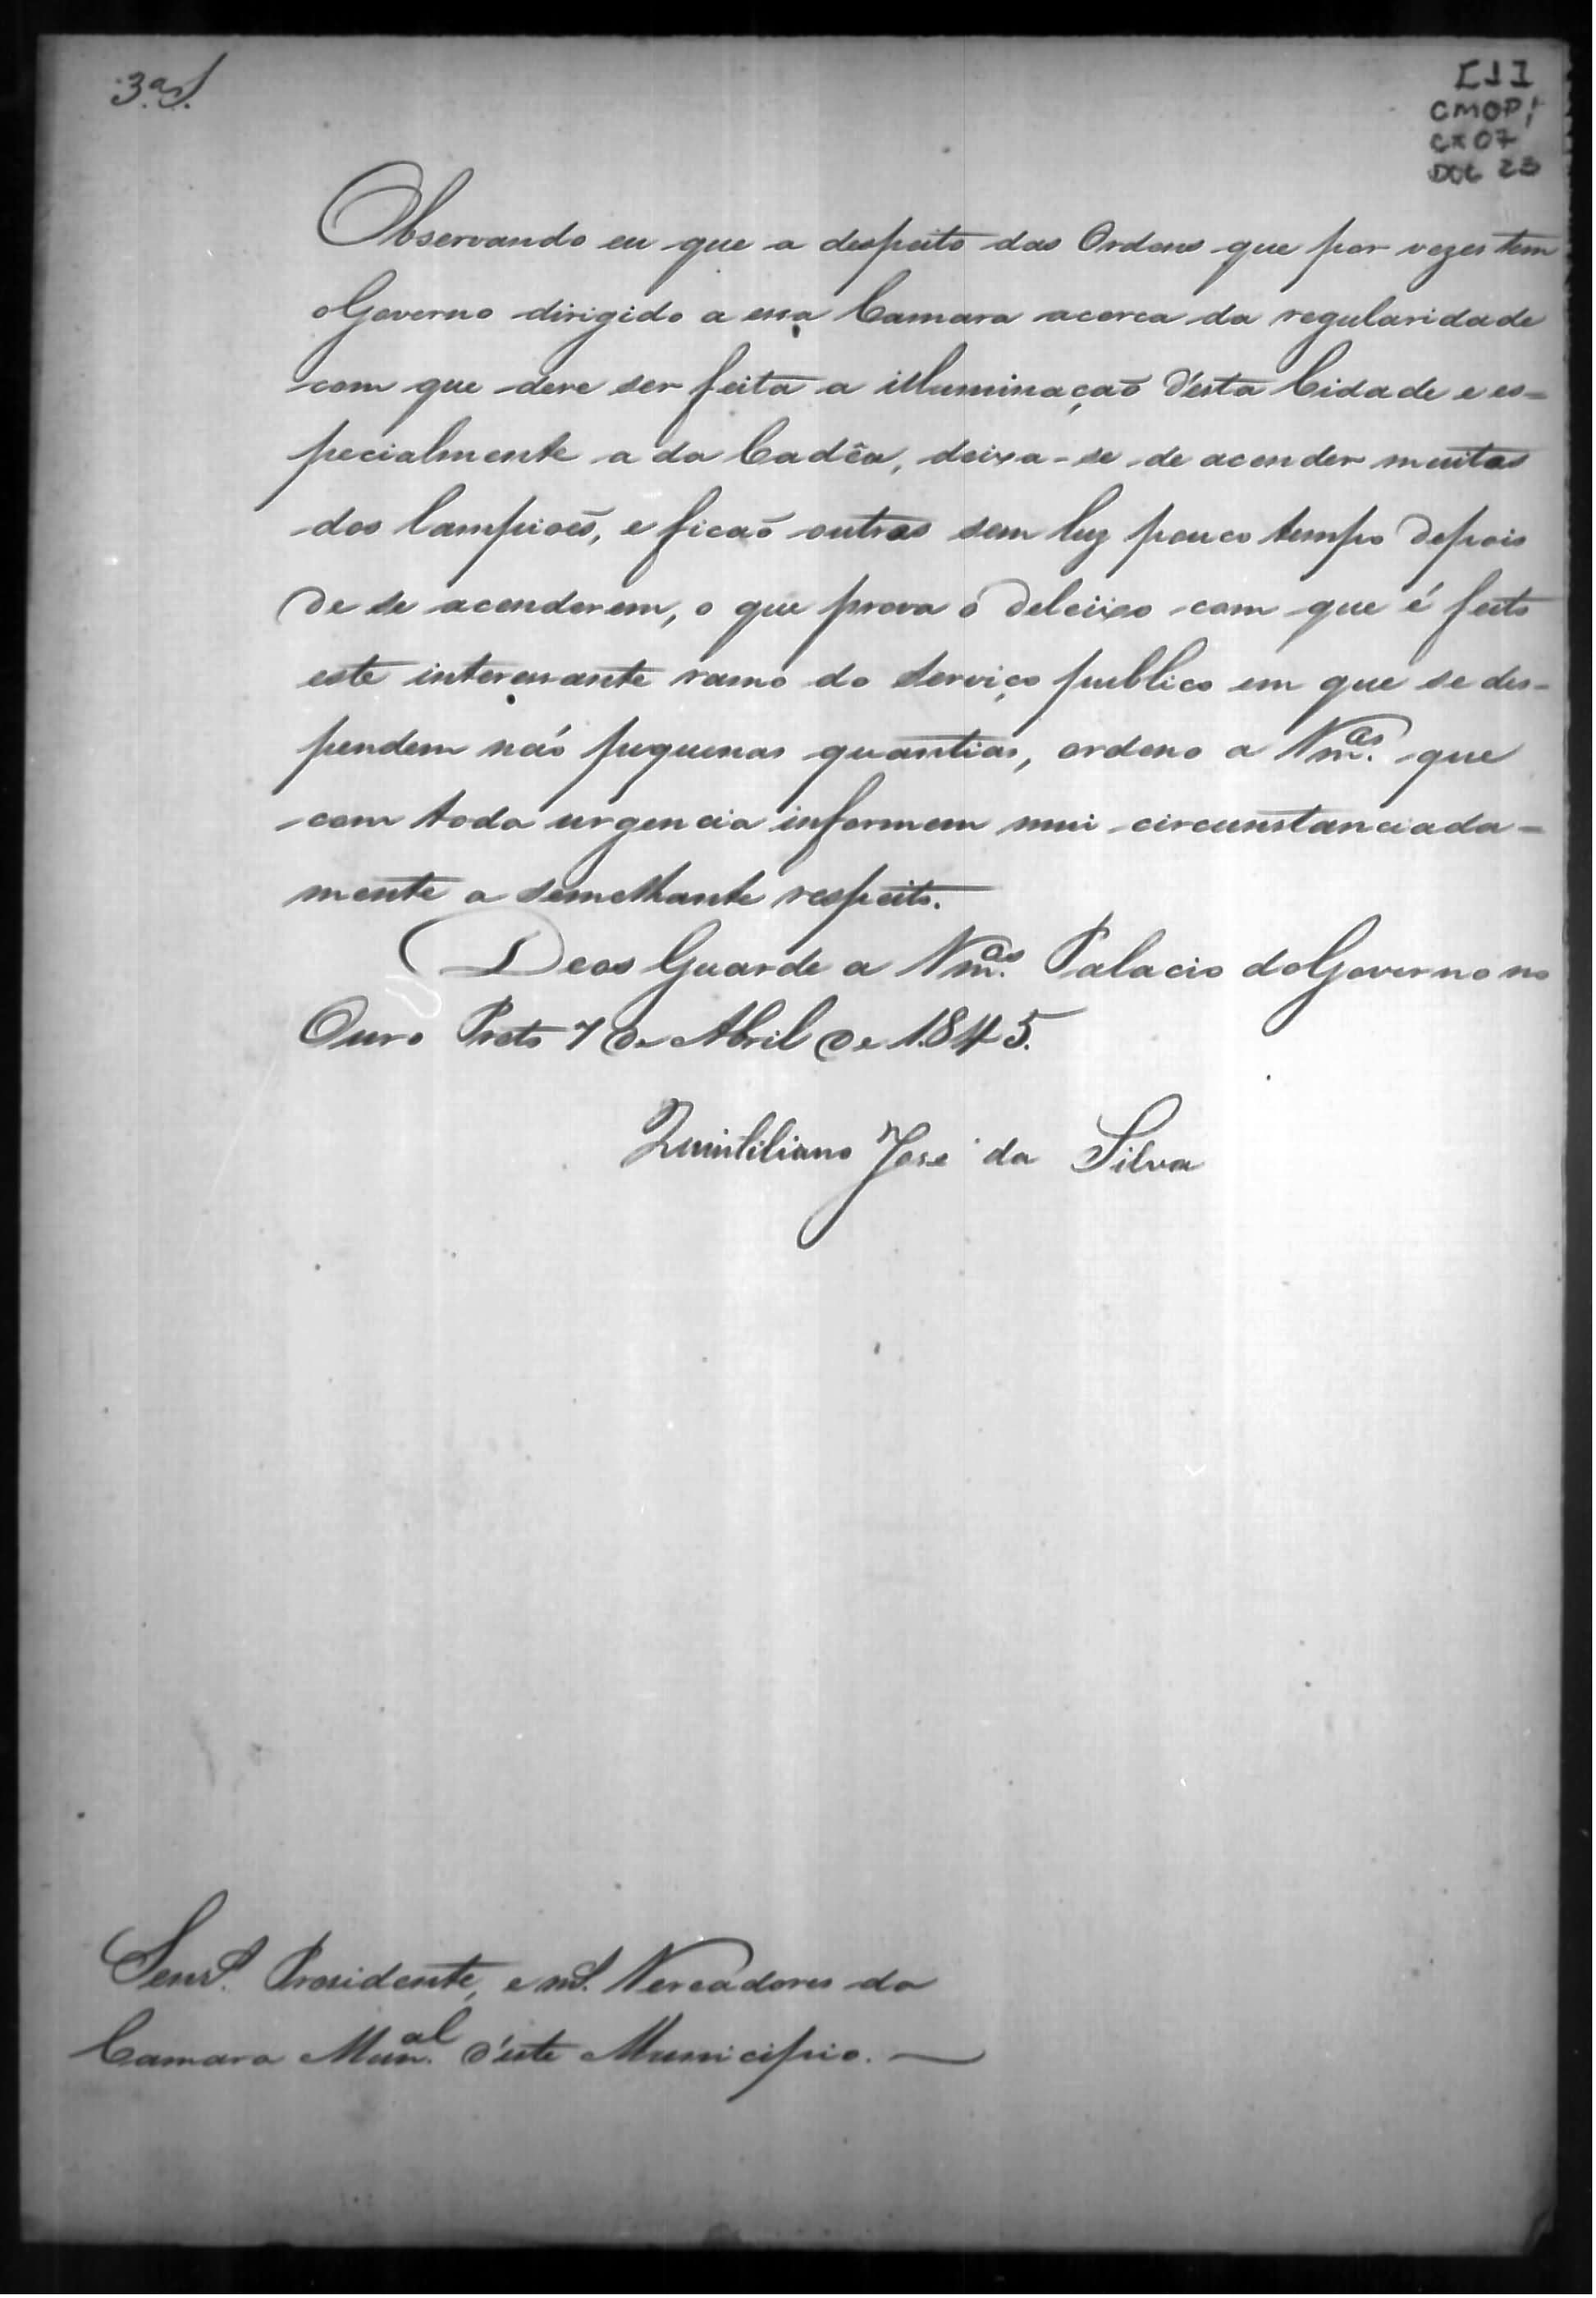 3.ª S.
[1]
CMOP/
CX 07
DOC 23
Observando eu que a despeito das Ordens que por vezes tem
o Governo dirigido a essa Camara acerca da regularidade
com que deve ser feita a illuminaçaõ d'esta Cidade e es=
pecialmente a da Cadêa, deixa-se de acender muitos
dos lampioẽs, e ficaõ outros sem luz pouco tempo depois
de se acenderem, o que prova o deleixo com que é feito
este interessante ramo do serviço publico em que se des-
pendem naõ pequenas quantias, ordeno a Vm.ces que
com toda urgencia informem mui circunstanciada=
mente a semelhante respeito.
Deos Guarde a Vm.ces Palacio do Governo no
Ouro Preto 7 de Abril de 1845.
Quintiliano José da Silva
Senr.s Presidente, e m.s Vereadores da
Camara Mun.al d'este Municipio. —